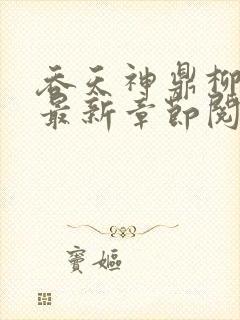 吞天神鼎柳
最新章節閱
竇嫗